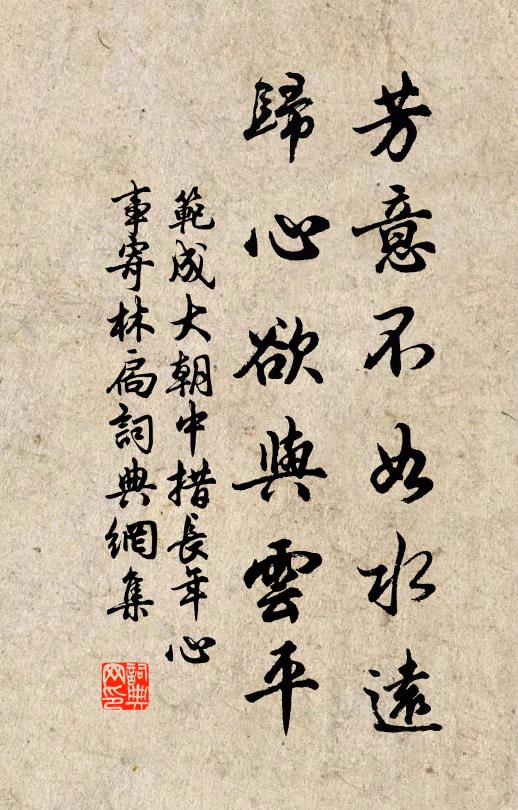 芳意不如水遠
歸心欲與雲平
範成大朝中措長年心
事寄林扃詞典網集
詞典
网印